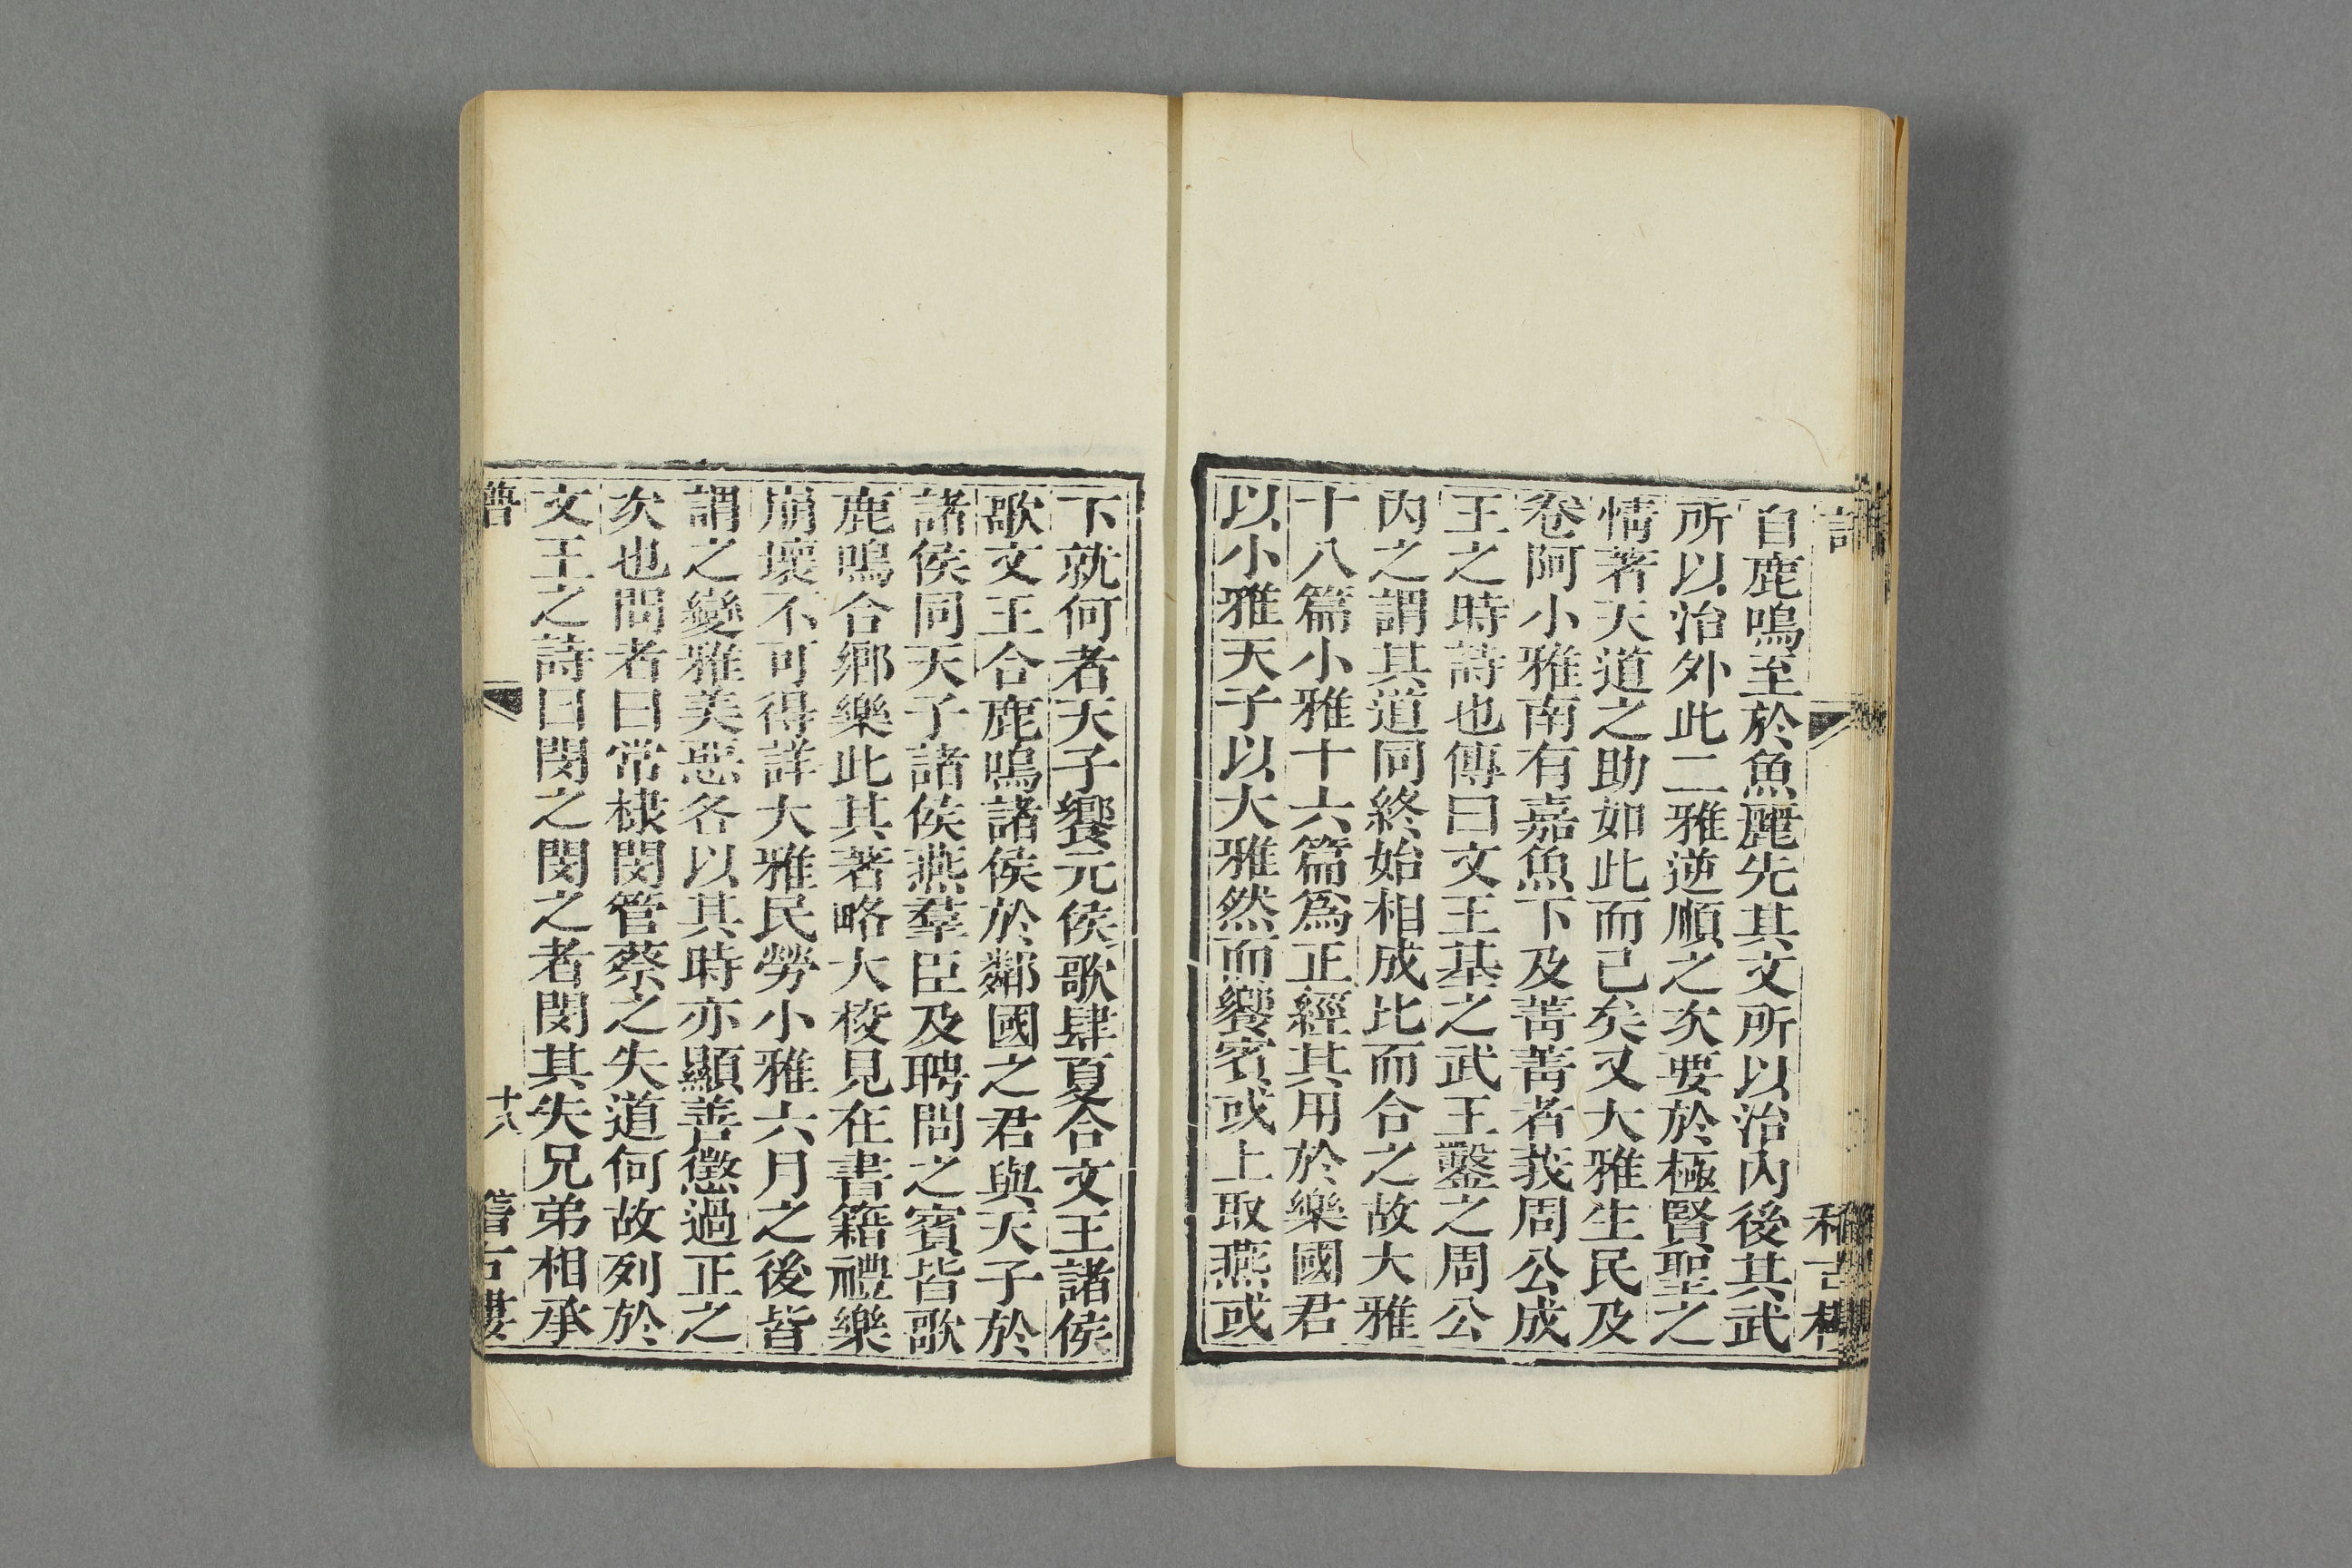 自鹿鳴至於魚麗先其文所以治內後其武
所以治外此二雅逆順之次要於極賢聖之
情著天道之助如此而已矣又大雅生民及
卷阿小雅南有嘉魚下及菁菁者莪周公成
王之時詩也傳曰文王基之武王鑿之周公
內之謂其道同終始相成比而合之故大雅
十八篇小雅十六篇爲正經其用於樂國君
以小雅天子以大雅然而饗賓或上取燕或
下就何者天子饗元侯歌肆夏合文王諸侯
歌文王合鹿鳴諸侯於鄰國之君與天子於
諸侯同天子諸侯燕羣臣及聘問之賓皆歌
鹿鳴合鄉樂此其著略大校見在書籍禮樂
崩壞不可得詳大雅民勞小雅六月之後皆
謂之變雅美惡各以其時亦顯善懲過正之
次也問者曰常棣閔管蔡之失道何故列於
文王之詩曰閔之閔之者閔其失兄弟相承
譜 十八 稽古樓